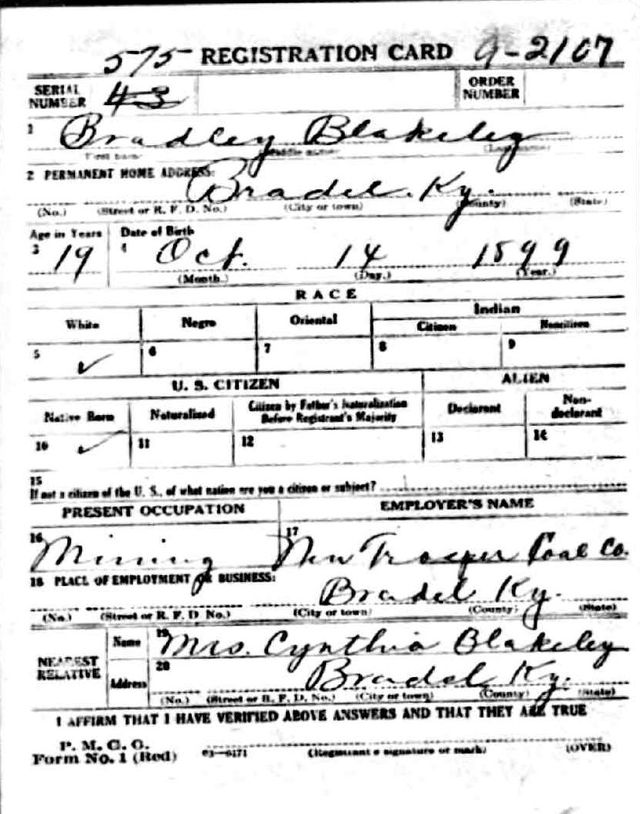 575 REGISTRATION CARD 9-2107
SERIAL NUMBER 43
ORDER NUMBER
1 Bradley Blakeley
First name Middle name (Last name)
2 PERMANENT HOME ADDRESS: Bradel. Ky.
(No.) (Street or R. F. D. No.) (City or town) (County) (State)
Age in Years Date of Birth
3 19 4 Oct. 14 1899
(Month.) (Day.) (Year.)
RACE
White Negro Oriental Indian
Citizen Noncitizen
5 ✓ 6 7 8 9
U. S. CITIZEN ALIEN
Native Born Naturalized Citizen by Father's Naturalization Before Registrant's Majority Declarant Non-declarant
10 ✓ 11 12 13 14
15
If not a citizen of the U. S., of what nation are you a citizen or subject?
PRESENT OCCUPATION EMPLOYER'S NAME
16 Mining 17 New Trosper Coal Co.
18 PLACE OF EMPLOYMENT OR BUSINESS:
Bradel Ky.
(No.) (Street or R. F. D. No.) (City or town) (County) (State)
NEAREST RELATIVE
Name 19 Mrs. Cynthia Blakeley
Address 20 Bradel Ky.
(No.) (Street or R. F. D. No.) (City or town) (County) (State)
I AFFIRM THAT I HAVE VERIFIED ABOVE ANSWERS AND THAT THEY ARE TRUE
P. M. G. O.
Form No. 1 (Red) 03—6171 (Registrant's signature or mark) (OVER)